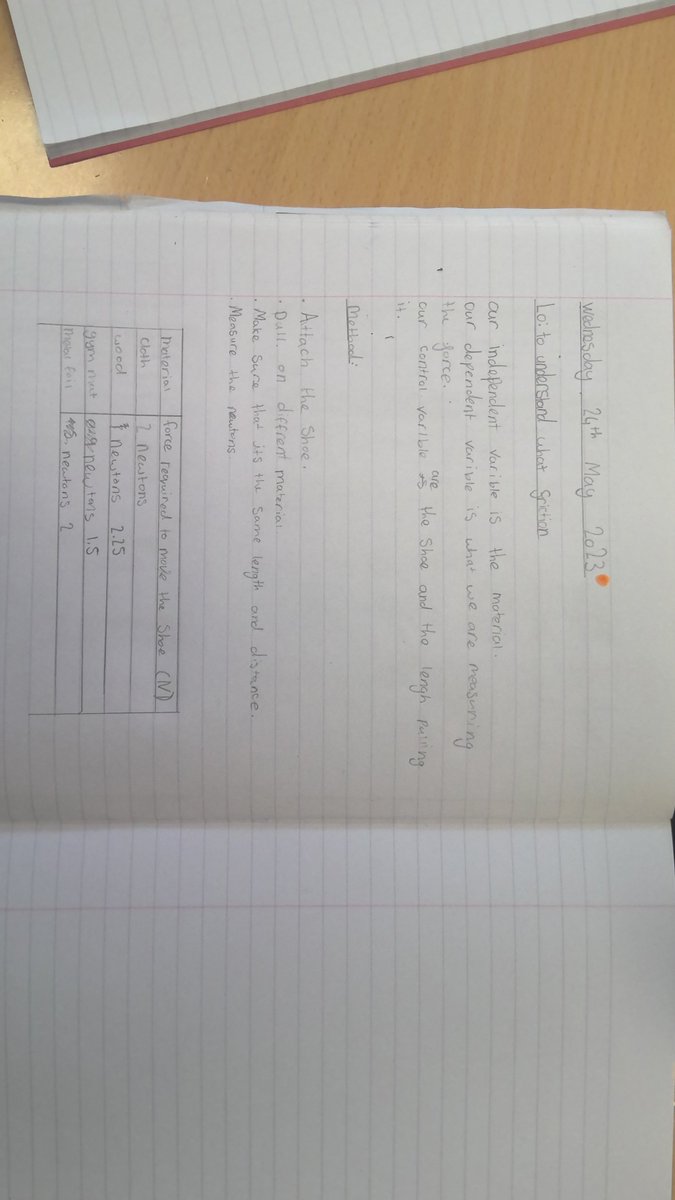 Wednesday 24th May 2023
Lo: to understand what friction
our independent varible is the material.
our dependent varible is what we are measuring
the force.
our control varible are the shoe and the lengh pulling
it.
Method:
• Attach the Shoe.
• Pull on diffrent material
• Make sure that its the same length and distance.
• Measure the newtons.
Material force required to move the Shoe (N)
cloth 2 newtons
wood newtons 2.25
gym mat newtons 1.5
metal foil newtons 2